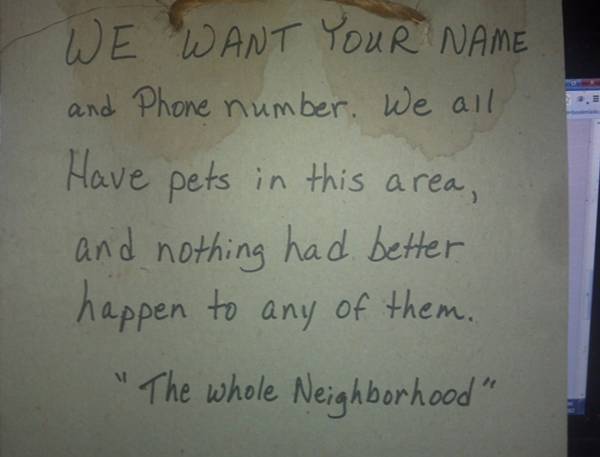 WE WANT YOUR NAME
and Phone number. We all
Have pets in this area,
and nothing had better
happen to any of them.
"The whole Neighborhood"